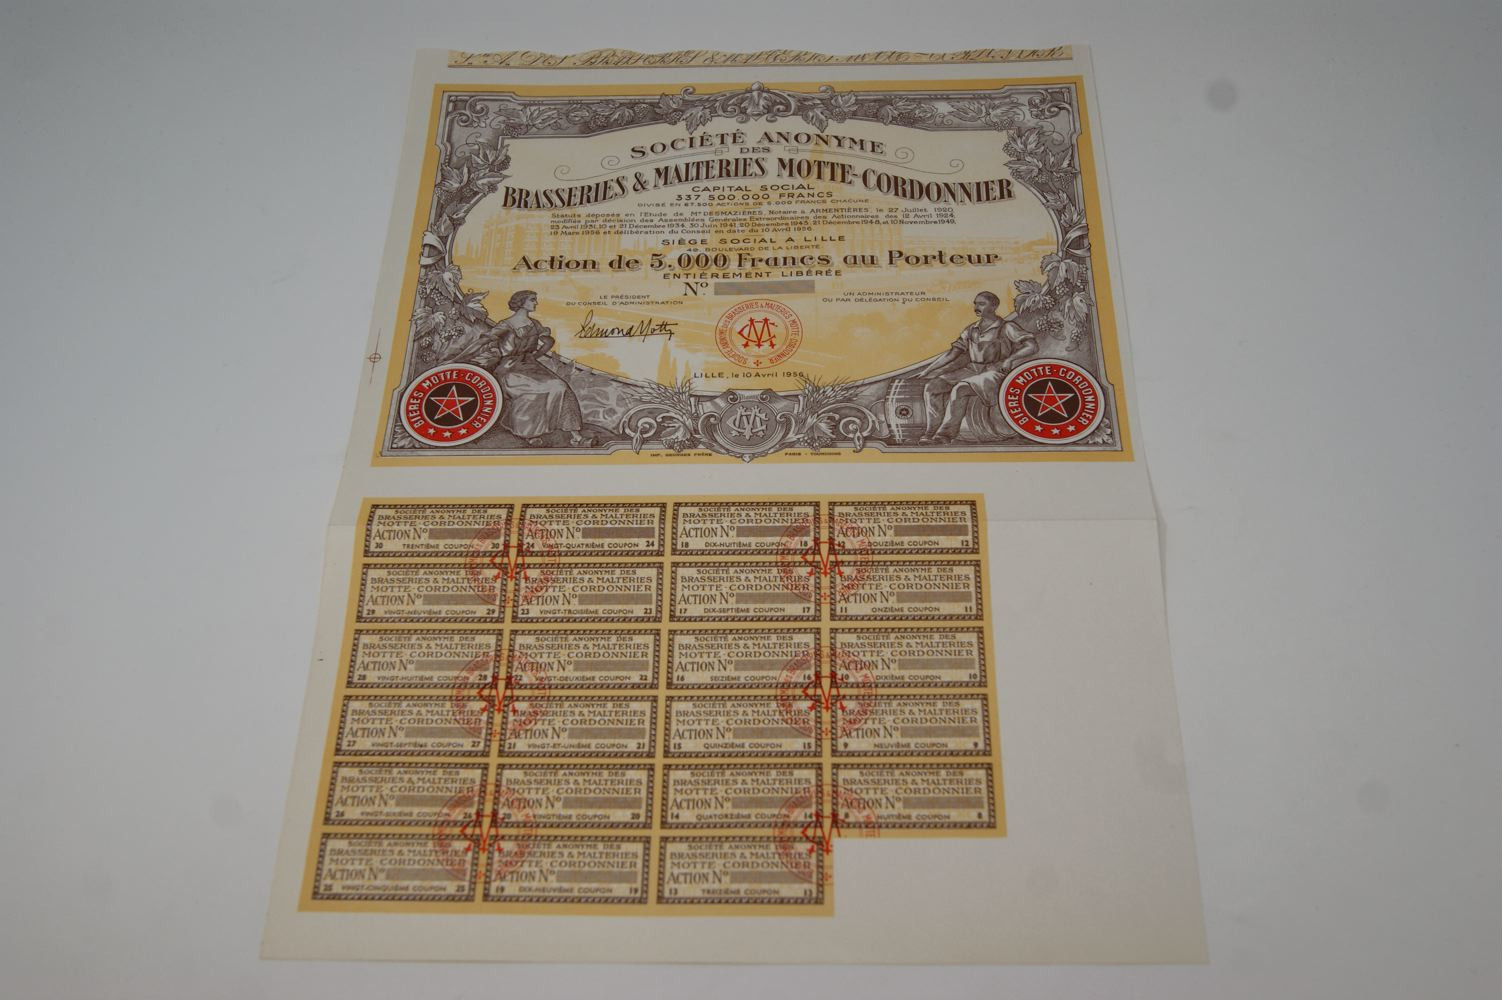 SOCIÉTÉ ANONYME
DES
BRASSERIES & MALTERIES MOTTE-CORDONNIER
CAPITAL SOCIAL
337.500.000 FRANCS
DIVISÉ EN 67.500 ACTIONS DE 5.000 FRANCS CHACUNE
Statuts déposés en l'Etude de Me DESMAZIÈRES, Notaire à ARMENTIÈRES le 27 Juillet 1920
modifiés par décision des Assemblées Générales Extraordinaires des Actionnaires des 12 Avril 1924,
23 Avril 1931, 10 et 21 Décembre 1934, 30 Juin 1941, 20 Décembre 1943, 21 Décembre 1948, et 10 Novembre 1949,
19 Mars 1956 et délibération du Conseil en date du 10 Avril 1956
SIÈGE SOCIAL A LILLE
49, BOULEVARD DE LA LIBERTÉ
Action de 5.000 Francs au Porteur
ENTIÈREMENT LIBÉRÉE
No
LE PRÉSIDENT
DU CONSEIL D'ADMINISTRATION
UN ADMINISTRATEUR
OU PAR DÉLÉGATION DU CONSEIL
Edmond Motte
SOCIÉTÉ ANONYME DES BRASSERIES & MALTERIES MOTTE CORDONNIER
LILLE, le 10 Avril 1956
BIÈRES MOTTE-CORDONNIER
BIÈRES MOTTE-CORDONNIER
IMP. GEORGES FRÈRE
PARIS - TOURCOING
SOCIÉTÉ ANONYME DES
BRASSERIES & MALTERIES
MOTTE-CORDONNIER
ACTION No
30 TRENTIÈME COUPON 30
SOCIÉTÉ ANONYME DES
BRASSERIES & MALTERIES
MOTTE-CORDONNIER
ACTION No
24 VINGT-QUATRIÈME COUPON 24
SOCIÉTÉ ANONYME DES
BRASSERIES & MALTERIES
MOTTE-CORDONNIER
ACTION No
18 DIX-HUITIÈME COUPON 18
SOCIÉTÉ ANONYME DES
BRASSERIES & MALTERIES
MOTTE-CORDONNIER
ACTION No
12 DOUZIÈME COUPON 12
SOCIÉTÉ ANONYME DES
BRASSERIES & MALTERIES
MOTTE-CORDONNIER
ACTION No
29 VINGT-NEUVIÈME COUPON 29
SOCIÉTÉ ANONYME DES
BRASSERIES & MALTERIES
MOTTE-CORDONNIER
ACTION No
23 VINGT-TROISIÈME COUPON 23
SOCIÉTÉ ANONYME DES
BRASSERIES & MALTERIES
MOTTE-CORDONNIER
ACTION No
17 DIX-SEPTIÈME COUPON 17
SOCIÉTÉ ANONYME DES
BRASSERIES & MALTERIES
MOTTE-CORDONNIER
ACTION No
11 ONZIÈME COUPON 11
SOCIÉTÉ ANONYME DES
BRASSERIES & MALTERIES
MOTTE-CORDONNIER
ACTION No
28 VINGT-HUITIÈME COUPON 28
SOCIÉTÉ ANONYME DES
BRASSERIES & MALTERIES
MOTTE-CORDONNIER
ACTION No
22 VINGT-DEUXIÈME COUPON 22
SOCIÉTÉ ANONYME DES
BRASSERIES & MALTERIES
MOTTE-CORDONNIER
ACTION No
16 SEIZIÈME COUPON 16
SOCIÉTÉ ANONYME DES
BRASSERIES & MALTERIES
MOTTE-CORDONNIER
ACTION No
10 DIXIÈME COUPON 10
SOCIÉTÉ ANONYME DES
BRASSERIES & MALTERIES
MOTTE-CORDONNIER
ACTION No
27 VINGT-SEPTIÈME COUPON 27
SOCIÉTÉ ANONYME DES
BRASSERIES & MALTERIES
MOTTE-CORDONNIER
ACTION No
21 VINGT-ET-UNIÈME COUPON 21
SOCIÉTÉ ANONYME DES
BRASSERIES & MALTERIES
MOTTE-CORDONNIER
ACTION No
15 QUINZIÈME COUPON 15
SOCIÉTÉ ANONYME DES
BRASSERIES & MALTERIES
MOTTE-CORDONNIER
ACTION No
9 NEUVIÈME COUPON 9
SOCIÉTÉ ANONYME DES
BRASSERIES & MALTERIES
MOTTE-CORDONNIER
ACTION No
26 VINGT-SIXIÈME COUPON 26
SOCIÉTÉ ANONYME DES
BRASSERIES & MALTERIES
MOTTE-CORDONNIER
ACTION No
20 VINGTIÈME COUPON 20
SOCIÉTÉ ANONYME DES
BRASSERIES & MALTERIES
MOTTE-CORDONNIER
ACTION No
14 QUATORZIÈME COUPON 14
SOCIÉTÉ ANONYME DES
BRASSERIES & MALTERIES
MOTTE-CORDONNIER
ACTION No
8 HUITIÈME COUPON 8
SOCIÉTÉ ANONYME DES
BRASSERIES & MALTERIES
MOTTE-CORDONNIER
ACTION No
25 VINGT-CINQUIÈME COUPON 25
SOCIÉTÉ ANONYME DES
BRASSERIES & MALTERIES
MOTTE-CORDONNIER
ACTION No
19 DIX-NEUVIÈME COUPON 19
SOCIÉTÉ ANONYME DES
BRASSERIES & MALTERIES
MOTTE-CORDONNIER
ACTION No
13 TREIZIÈME COUPON 13